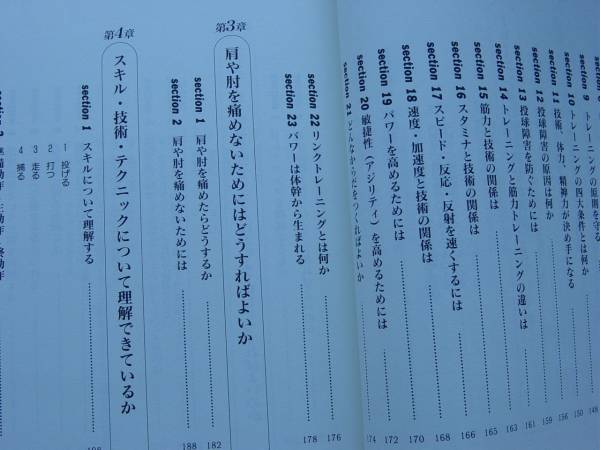 section 9 トレーニングの原則を守る 148
section 10 トレーニングの四大条件とは何か 150
section 11 技術、体力、精神力が決め手になる 156
section 12 投球障害の原因は何か 159
section 13 投球障害を防ぐためには 161
section 14 トレーニングと筋力トレーニングの違いは 163
section 15 筋力と技術の関係は 165
section 16 スタミナと技術の関係は 166
section 17 スピード・反応・反射を速くするには 168
section 18 速度・加速度と技術の関係は 170
section 19 パワーを高めるためには 172
section 20 敏捷性（アジリティ）を高めるためには 174
section 21 どんなからだをつくればよいか
section 22 リンクトレーニングとは何か 176
section 23 パワーは体幹から生まれる 178
第3章 肩や肘を痛めないためにはどうすればよいか
section 1 肩や肘を痛めたらどうするか 182
section 2 肩や肘を痛めないためには 188
第4章 スキル・技術・テクニックについて理解できているか
section 1 スキルについて理解する
1 投げる
2 打つ
3 走る
4 捕る